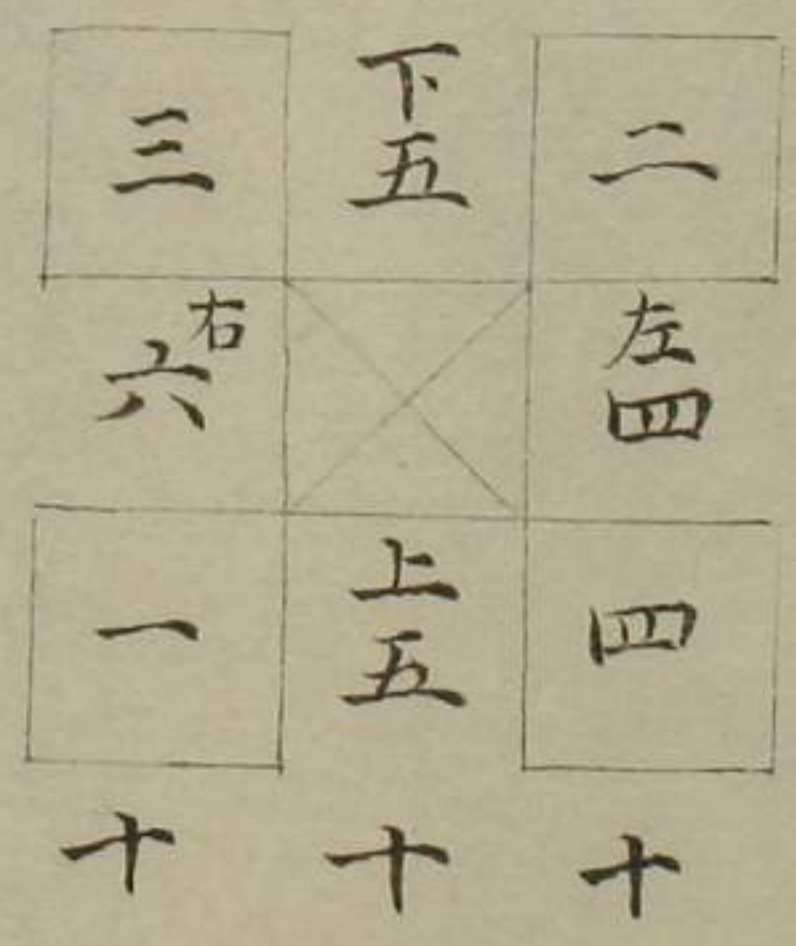 三 下五 二
右六 左四
一 上五 四
十 十 十